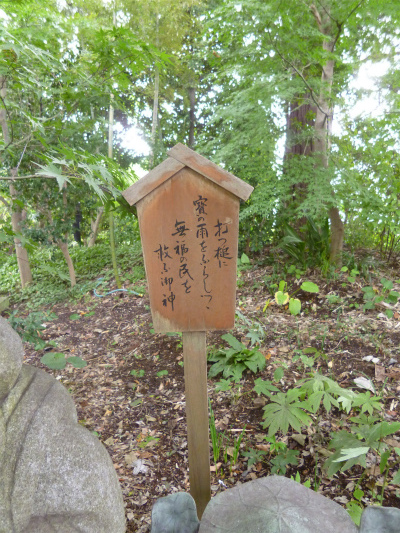 打つ槌に
寳の雨をふらしつゝ
無福の民を
救ふ御神